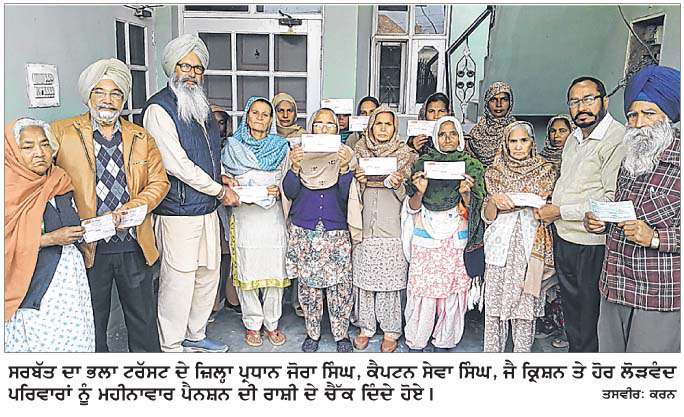 ਸਰਬੱਤ ਦਾ ਭਲਾ ਟਰੱਸਟ ਦੇ ਜ਼ਿਲ੍ਹਾ ਪ੍ਰਧਾਨ ਜੋਰਾ ਸਿੰਘ, ਕੈਪਟਨ ਸੇਵਾ ਸਿੰਘ, ਜੈ ਕ੍ਰਿਸ਼ਨ ਤੇ ਹੋਰ ਲੋੜਵੰਦ
ਪਰਿਵਾਰਾਂ ਨੂੰ ਮਹੀਨਾਵਾਰ ਪੈਨਸ਼ਨ ਦੀ ਰਾਸ਼ੀ ਦੇ ਚੈੱਕ ਦਿੰਦੇ ਹੋਏ। ਤਸਵੀਰ: ਕਰਨ